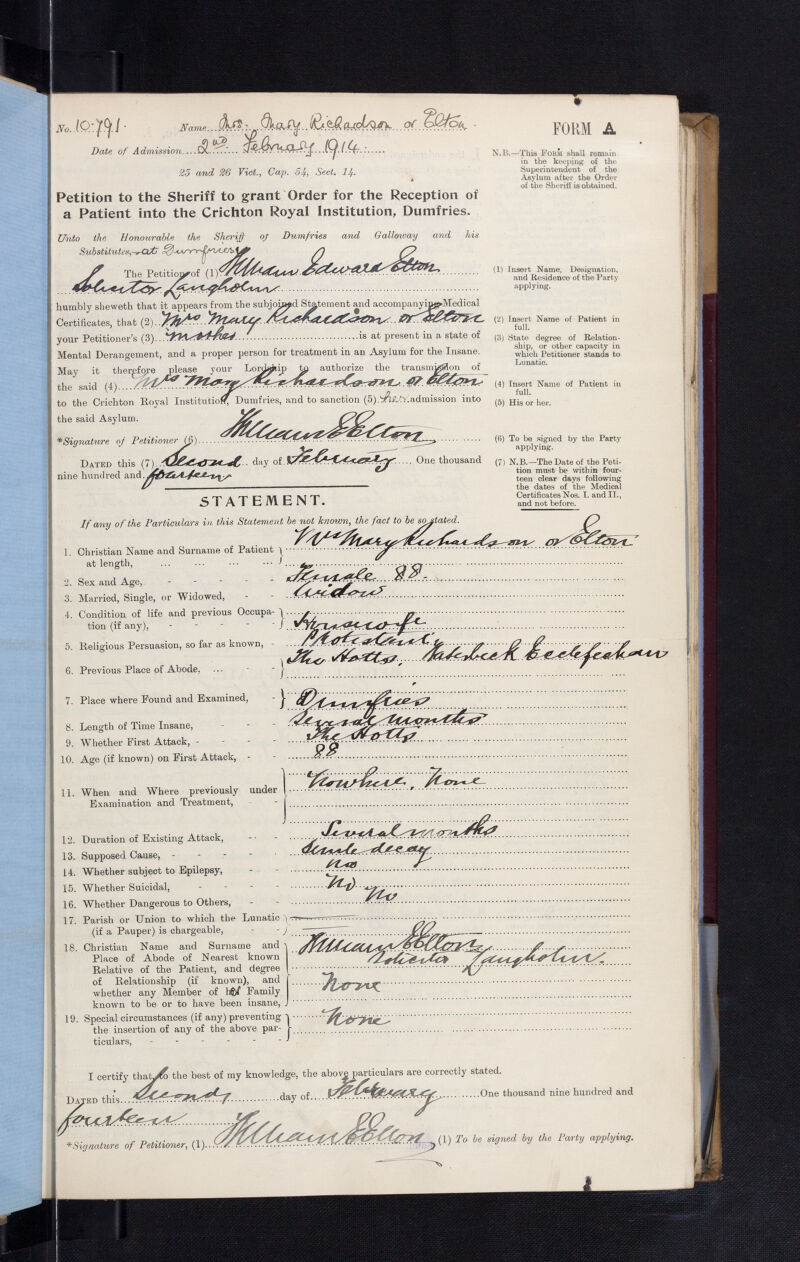 No. 10.791. Name Mrs. Mary Richardson or Elton.
FORM A
Date of Admission 2nd February 1914.
25 and 26 Vict., Cap. 54, Sect. 14.
N.B.—This FORM shall remain
in the keeping of the
Superintendent of the
Asylum after the Order
of the Sheriff is obtained.
Petition to the Sheriff to grant Order for the Reception of
a Patient into the Crichton Royal Institution, Dumfries.
Unto the Honourable the Sheriff of Dumfries and Galloway and his
Substitutes, at Dumfries
The Petition of (1) William Edward Elton
Solicitor Langholm
(1) Insert Name, Designation,
and Residence of the Party
applying.
humbly sheweth that it appears from the subjoined Statement and accompanying Medical
Certificates, that (2) Mrs Mary Richardson or Elton
(2) Insert Name of Patient in
full.
your Petitioner's (3) mother is at present in a state of
(3) State degree of Relation-
ship, or other capacity in
which Petitioner stands to
Lunatic.
Mental Derangement, and a proper person for treatment in an Asylum for the Insane.
May it therefore please your Lordship to authorize the transmission of
the said (4) Mrs Mary Richardson or Elton
(4) Insert Name of Patient in
full.
to the Crichton Royal Institution, Dumfries, and to sanction (5) her admission into
(5) His or her.
the said Asylum.
*Signature of Petitioner (6) William E Elton
(6) To be signed by the Party
applying.
DATED this (7) Second day of February One thousand
nine hundred and fourteen
(7) N.B.—The Date of the Peti-
tion must be within four-
teen clear days following
the dates of the Medical
Certificates Nos. I. and II.,
and not before.
STATEMENT.
If any of the Particulars in this Statement be not known, the fact to be so stated.
1. Christian Name and Surname of Patient
at length, ... ... ... ... Mrs Mary Richardson or Elton
2. Sex and Age, - - - - - Female 88.
3. Married, Single, or Widowed, - - Widow
4. Condition of life and previous Occupa-
tion (if any), - - - - - Housewife
5. Religious Persuasion, so far as known, - Protestant
6. Previous Place of Abode, ... - The Hotts, Ecclefechan
7. Place where Found and Examined, - Dumfries
8. Length of Time Insane, - - Several months
9. Whether First Attack, - - - The Hotts
10. Age (if known) on First Attack, - - 88
11. When and Where previously under
Examination and Treatment, - - Nowhere, None
12. Duration of Existing Attack, - - - Several months
13. Supposed Cause, - - - - - Senile decay
14. Whether subject to Epilepsy, - - No
15. Whether Suicidal, - - - - No
16. Whether Dangerous to Others, - - No
17. Parish or Union to which the Lunatic
(if a Pauper) is chargeable, - -
18. Christian Name and Surname and
Place of Abode of Nearest known
Relative of the Patient, and degree
of Relationship (if known), and
whether any Member of her Family
known to be or to have been insane,
William E Elton
Solicitor Langholm.
None
19. Special circumstances (if any) preventing
the insertion of any of the above par-
ticulars, - - - - - - None
I certify that, to the best of my knowledge, the above particulars are correctly stated.
DATED this Second day of February One thousand nine hundred and
fourteen
*Signature of Petitioner, (1) William E Elton (1) To be signed by the Party applying.